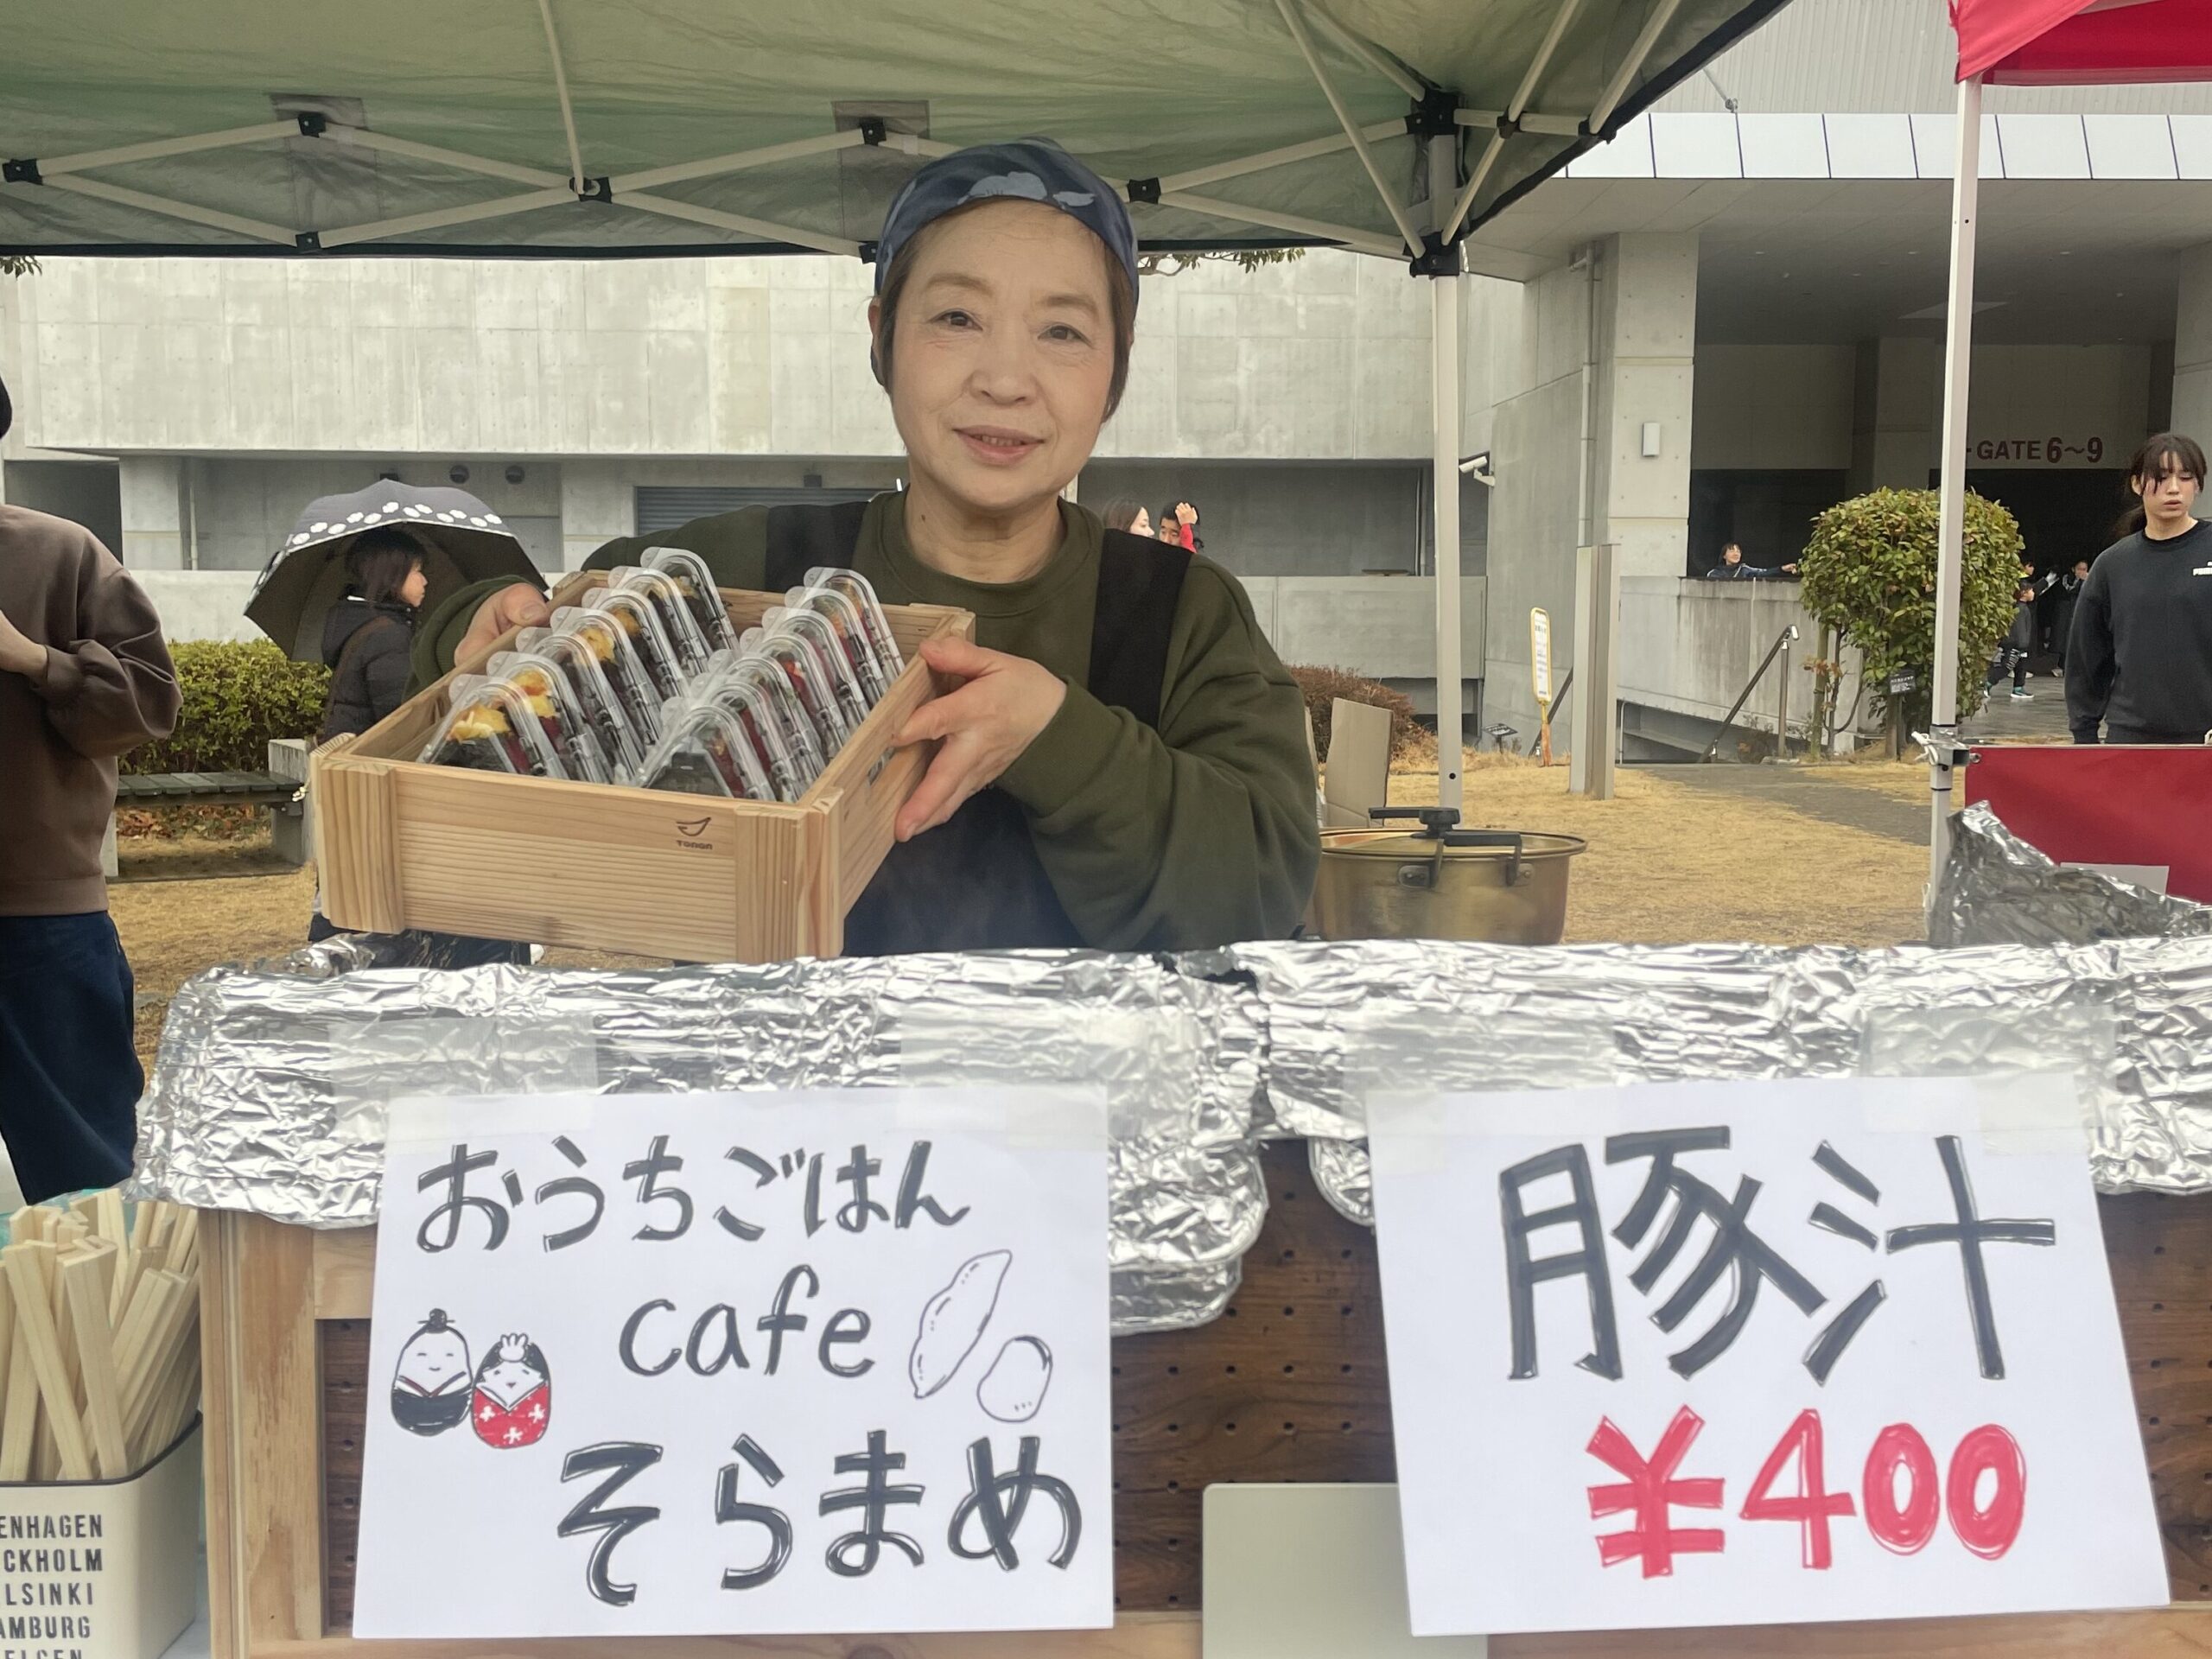 GATE 6〜9
おうちごはん
cafe
そらまめ
豚汁
¥400
ENHAGEN
CKHOLM
LSINKI
AMBURG